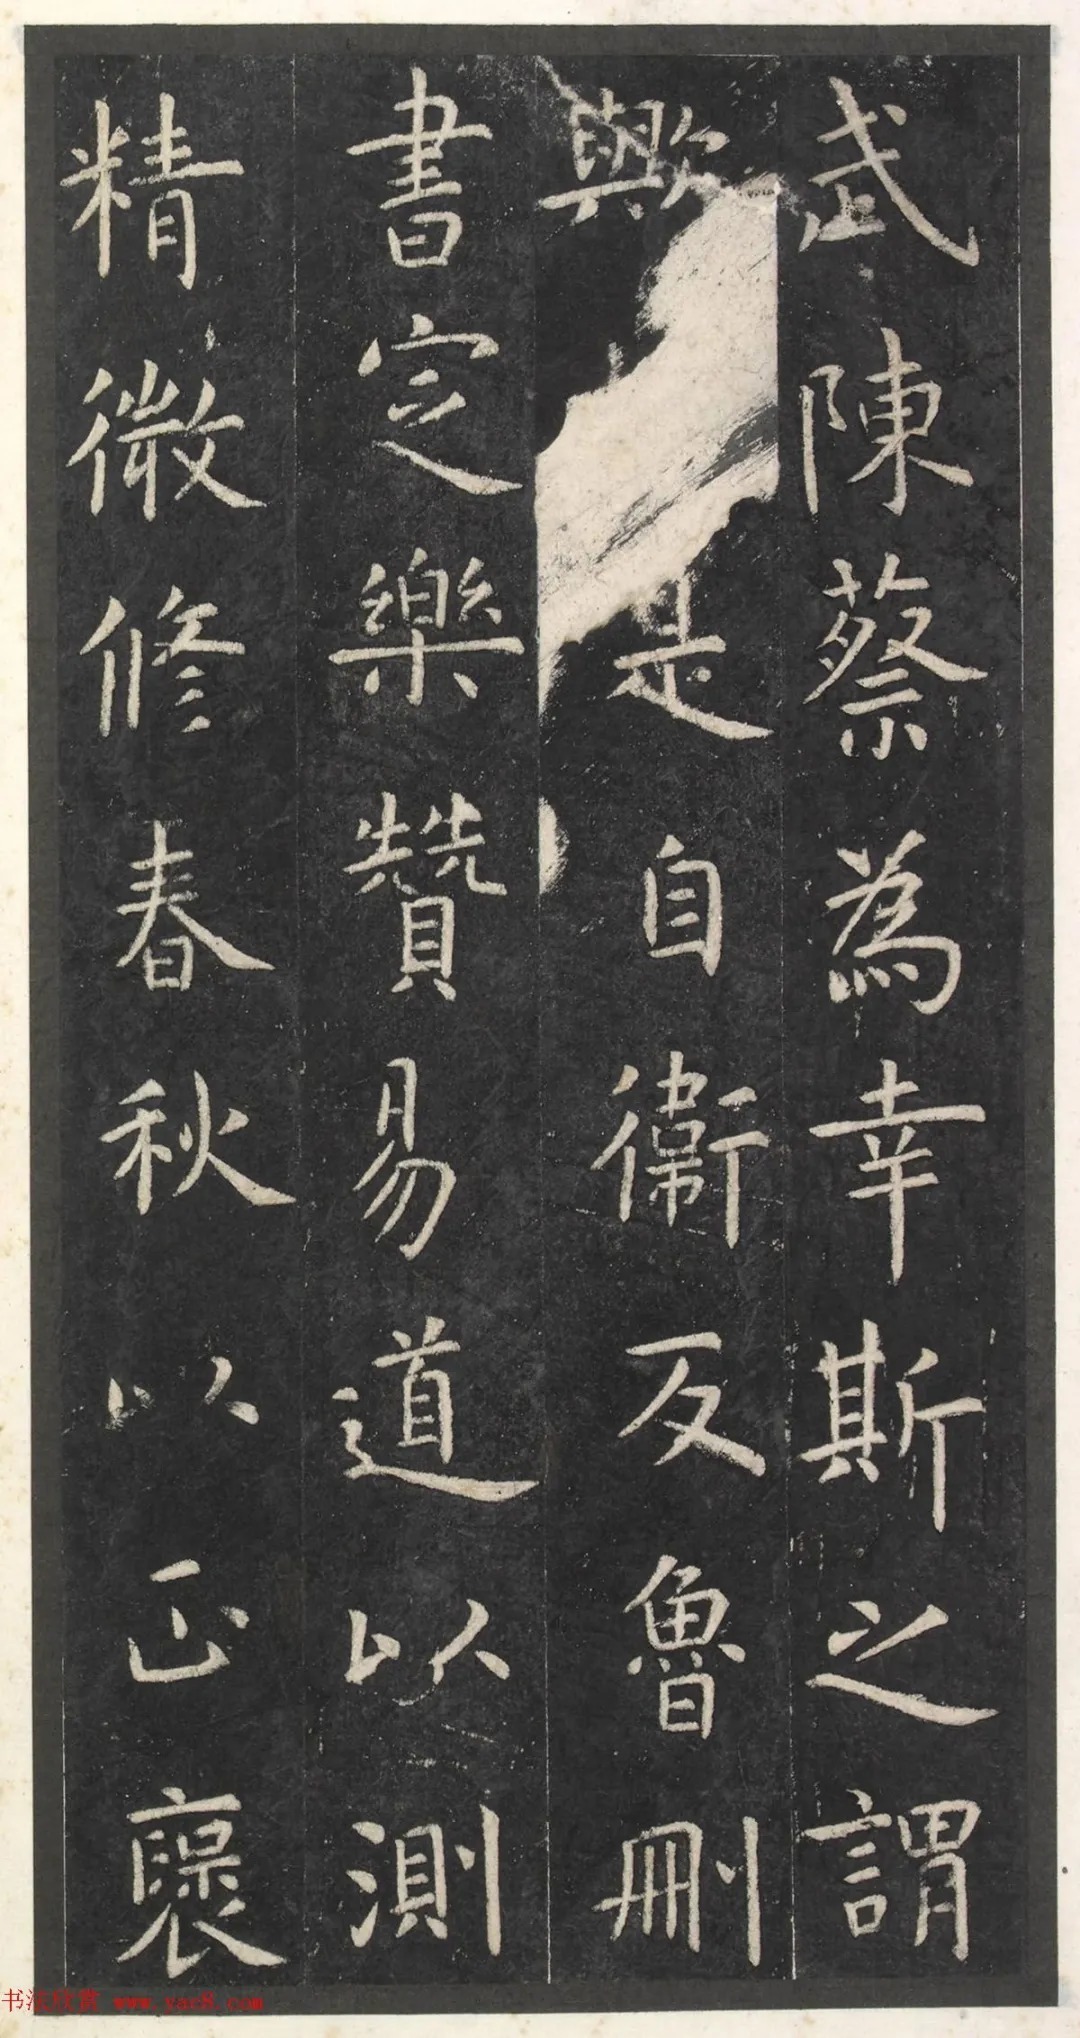 武陳蔡為幸斯之謂
歟是自衛反魯刪
書定樂贊易道以測
精微修春秋以正褒
书法欣赏 www.yac8.com